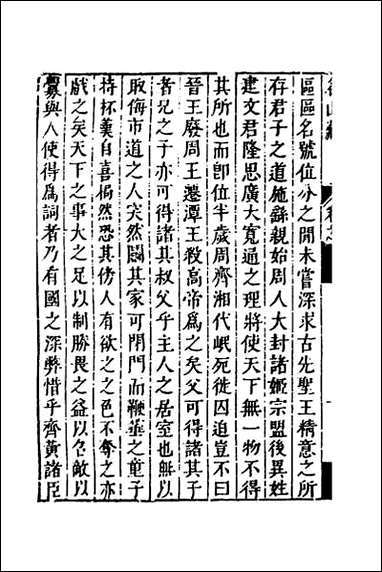 區區名號位分之閒未嘗深求古先聖王精意之所
存君子之道施繇親始周人大封諸姬宗盟後異姓
建文君隆思廣大寬通之理將使天下無一物不得
其所也而卽位半歲周齊湘代岷死徙囚追豈不曰
晉王廢周王懲潭王殺高帝爲之矣父可得諸其子
者兄之子亦可得諸其叔父乎主人之居室也無以
取侮市道之人突然鬭其家可閉門而鞭箠之童子
持杯羹自喜惕然恐其傍人有欲之之色不奪之亦
戲之矣天下之事大之足以制勝畏之益以召敵以
釁與人使得爲詞者乃有國之深弊惜乎齊黃諸臣